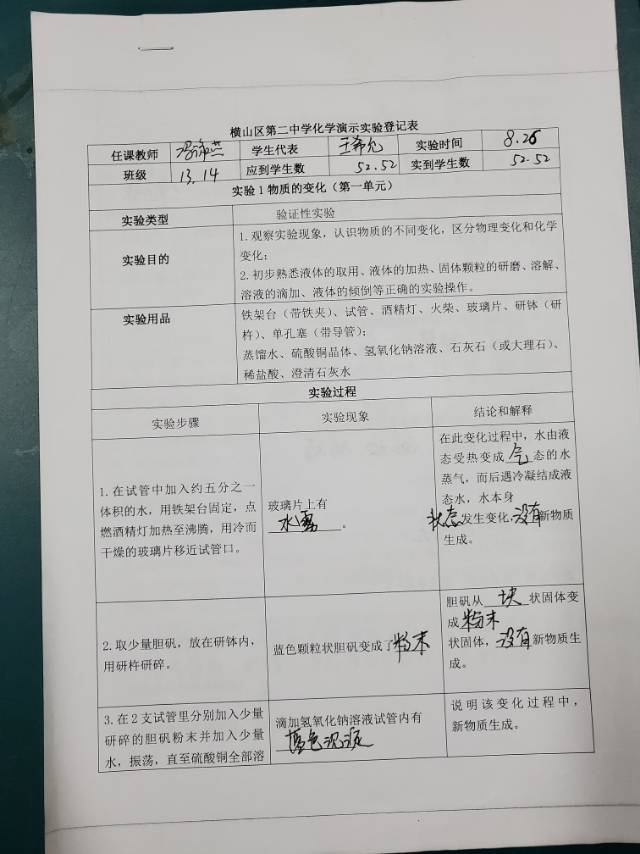 横山区第二中学化学演示实验登记表
任课教师 学生代表 实验时间 8.26
班级 13.14 应到学生数 52.52 实到学生数 52.52
实验1物质的变化（第一单元）
实验类型 验证性实验
实验目的
1.观察实验现象，认识物质的不同变化，区分物理变化和化学
变化；
2.初步熟悉液体的取用、液体的加热、固体颗粒的研磨、溶解、
溶液的滴加、液体的倾倒等正确的实验操作。
实验用品
铁架台（带铁夹）、试管、酒精灯、火柴、玻璃片、研钵（研
杵）、单孔塞（带导管）；
蒸馏水、硫酸铜晶体、氢氧化钠溶液、石灰石（或大理石）、
稀盐酸、澄清石灰水
实验过程
实验步骤 实验现象 结论和解释
1.在试管中加入约五分之一
体积的水，用铁架台固定，点
燃酒精灯加热至沸腾，用冷而
干燥的玻璃片移近试管口。
玻璃片上有
水雾。
在此变化过程中，水由液
态受热变成气态的水
蒸气，而后遇冷凝结成液
态水，水本身
状态发生变化，没有新物质
生成。
2.取少量胆矾，放在研钵内，
用研杵研碎。
蓝色颗粒状胆矾变成了粉末
胆矾从块状固体变
成粉末
状固体，没有新物质生
成。
3.在2支试管里分别加入少量
研碎的胆矾粉末并加入少量
水，振荡，直至硫酸铜全部溶
滴加氢氧化钠溶液试管内有
蓝色沉淀
说明该变化过程中，
新物质生成。